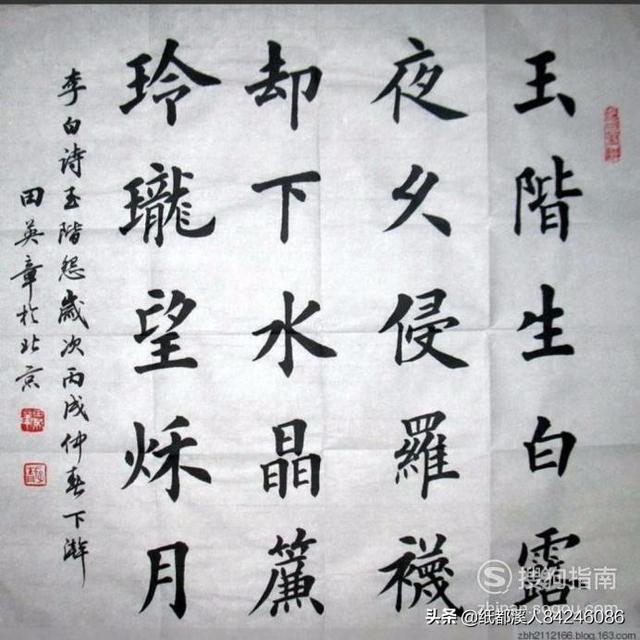 玉階生白露
夜久侵羅襪
却下水晶簾
玲瓏望秌月
李白诗玉階怨歲次丙戌仲春下澣
田英章於北京
搜狗指南
zhinan.sogou.com
头条@纸都濮人84246086
zbh2112166.blog.163.com